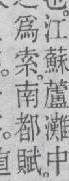 也。江蘇蘆灘中
爲索。南都賦